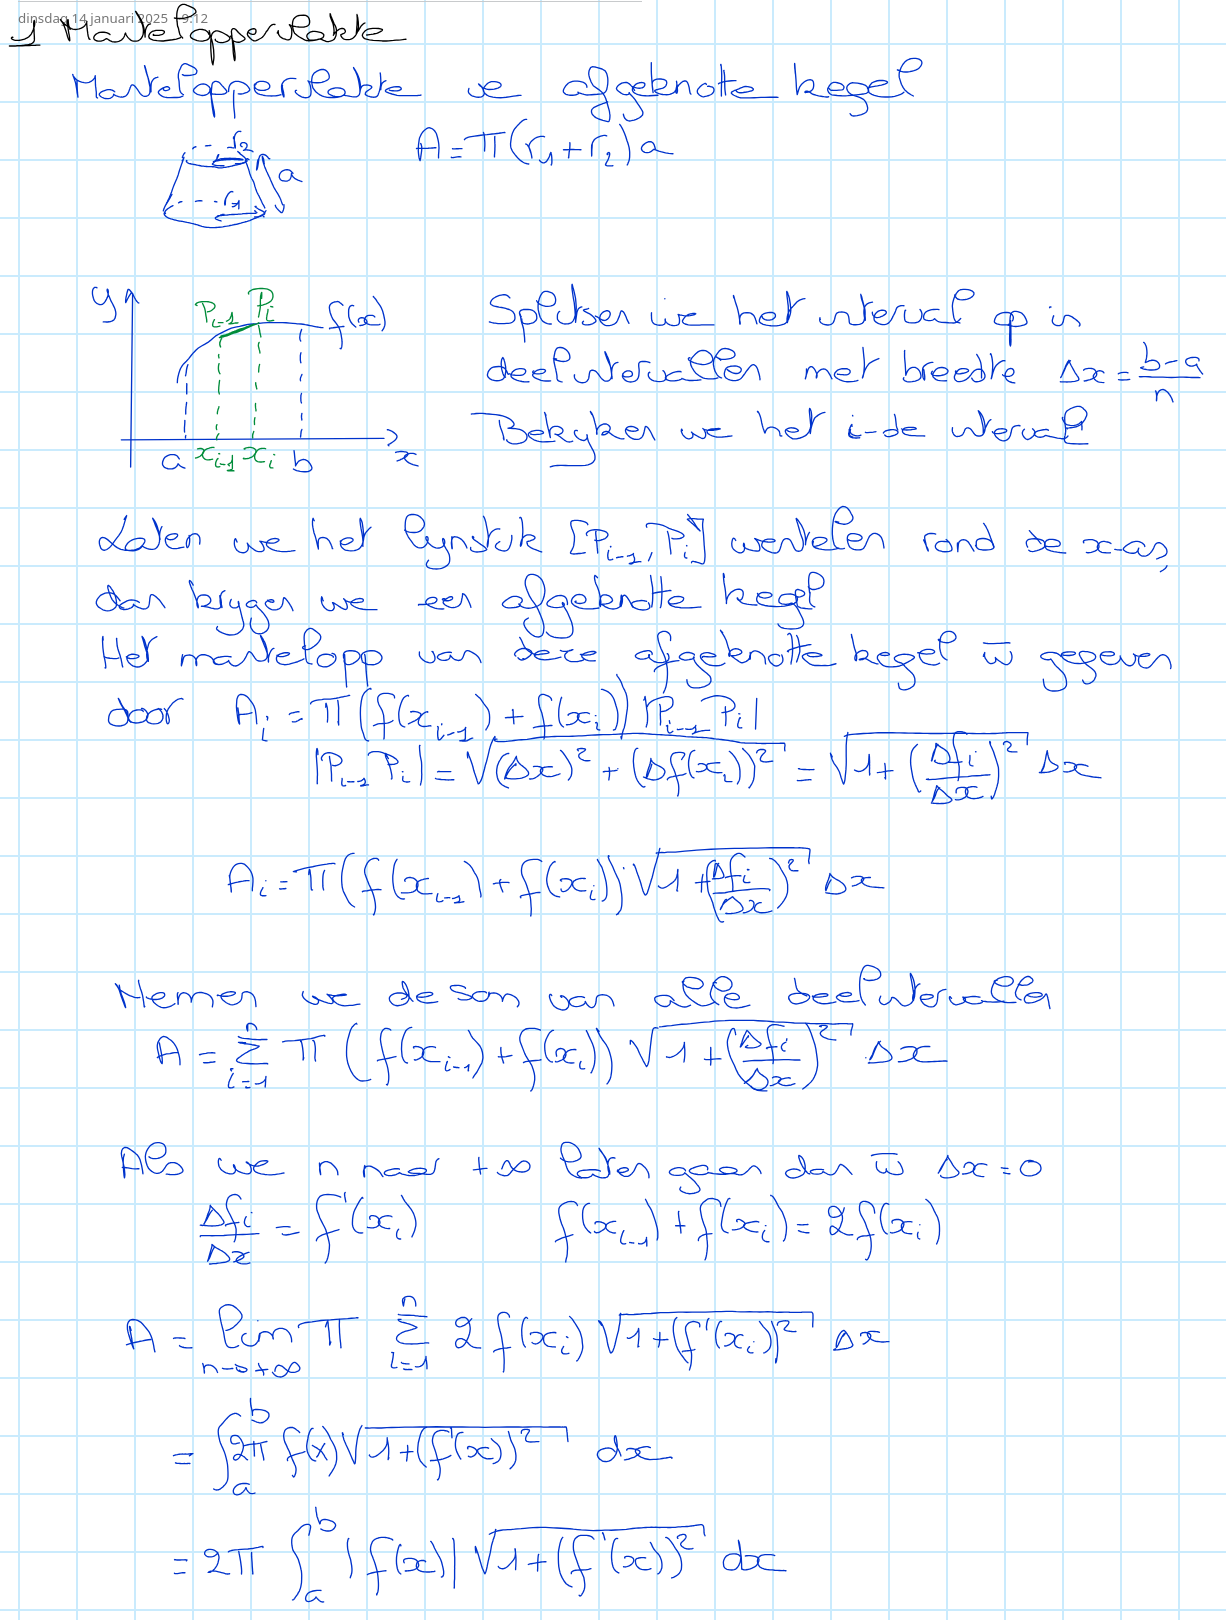 dinsdag 14 januari 2025 9:12
1 Manteloppervlakte
Manteloppervlakte ve afgeknotte kegel
A = π(r₁ + r₂) a
r₂
a
r₁
y
Pᵢ₋₁ Pᵢ
f(x)
a xᵢ₋₁ xᵢ b x
Splitsen we het interval op in
deelintervallen met breedte Δx = (b-a)/n
Bekijken we het i-de interval
Laten we het lijnstuk [Pᵢ₋₁, Pᵢ] wentelen rond de x-as,
dan krijgen we een afgeknotte kegel
Het mantelopp van deze afgeknotte kegel w̅ gegeven
door Aᵢ = π(f(xᵢ₋₁) + f(xᵢ)) |Pᵢ₋₁ Pᵢ|
|Pᵢ₋₁ Pᵢ| = √((Δx)² + (Δf(xᵢ))²) = √(1 + (Δfᵢ/Δx)²) Δx
Aᵢ = π(f(xᵢ₋₁) + f(xᵢ)) · √(1 + (Δfᵢ/Δx)²) Δx
Nemen we de som van alle deelintervallen
A = Σᵢ₌₁ⁿ π (f(xᵢ₋₁) + f(xᵢ)) √(1 + (Δfᵢ/Δx)²) Δx
Als we n naar +∞ laten gaan dan w̅ Δx = 0
Δfᵢ/Δx = f'(xᵢ) f(xᵢ₋₁) + f(xᵢ) = 2f(xᵢ)
A = lim n→+∞ π Σᵢ₌₁ⁿ 2 f(xᵢ) √(1 + (f'(xᵢ))²) Δx
= ∫ₐᵇ 2π f(x) √(1 + (f'(x))²) dx
= 2π ∫ₐᵇ |f(x)| √(1 + (f'(x))²) dx